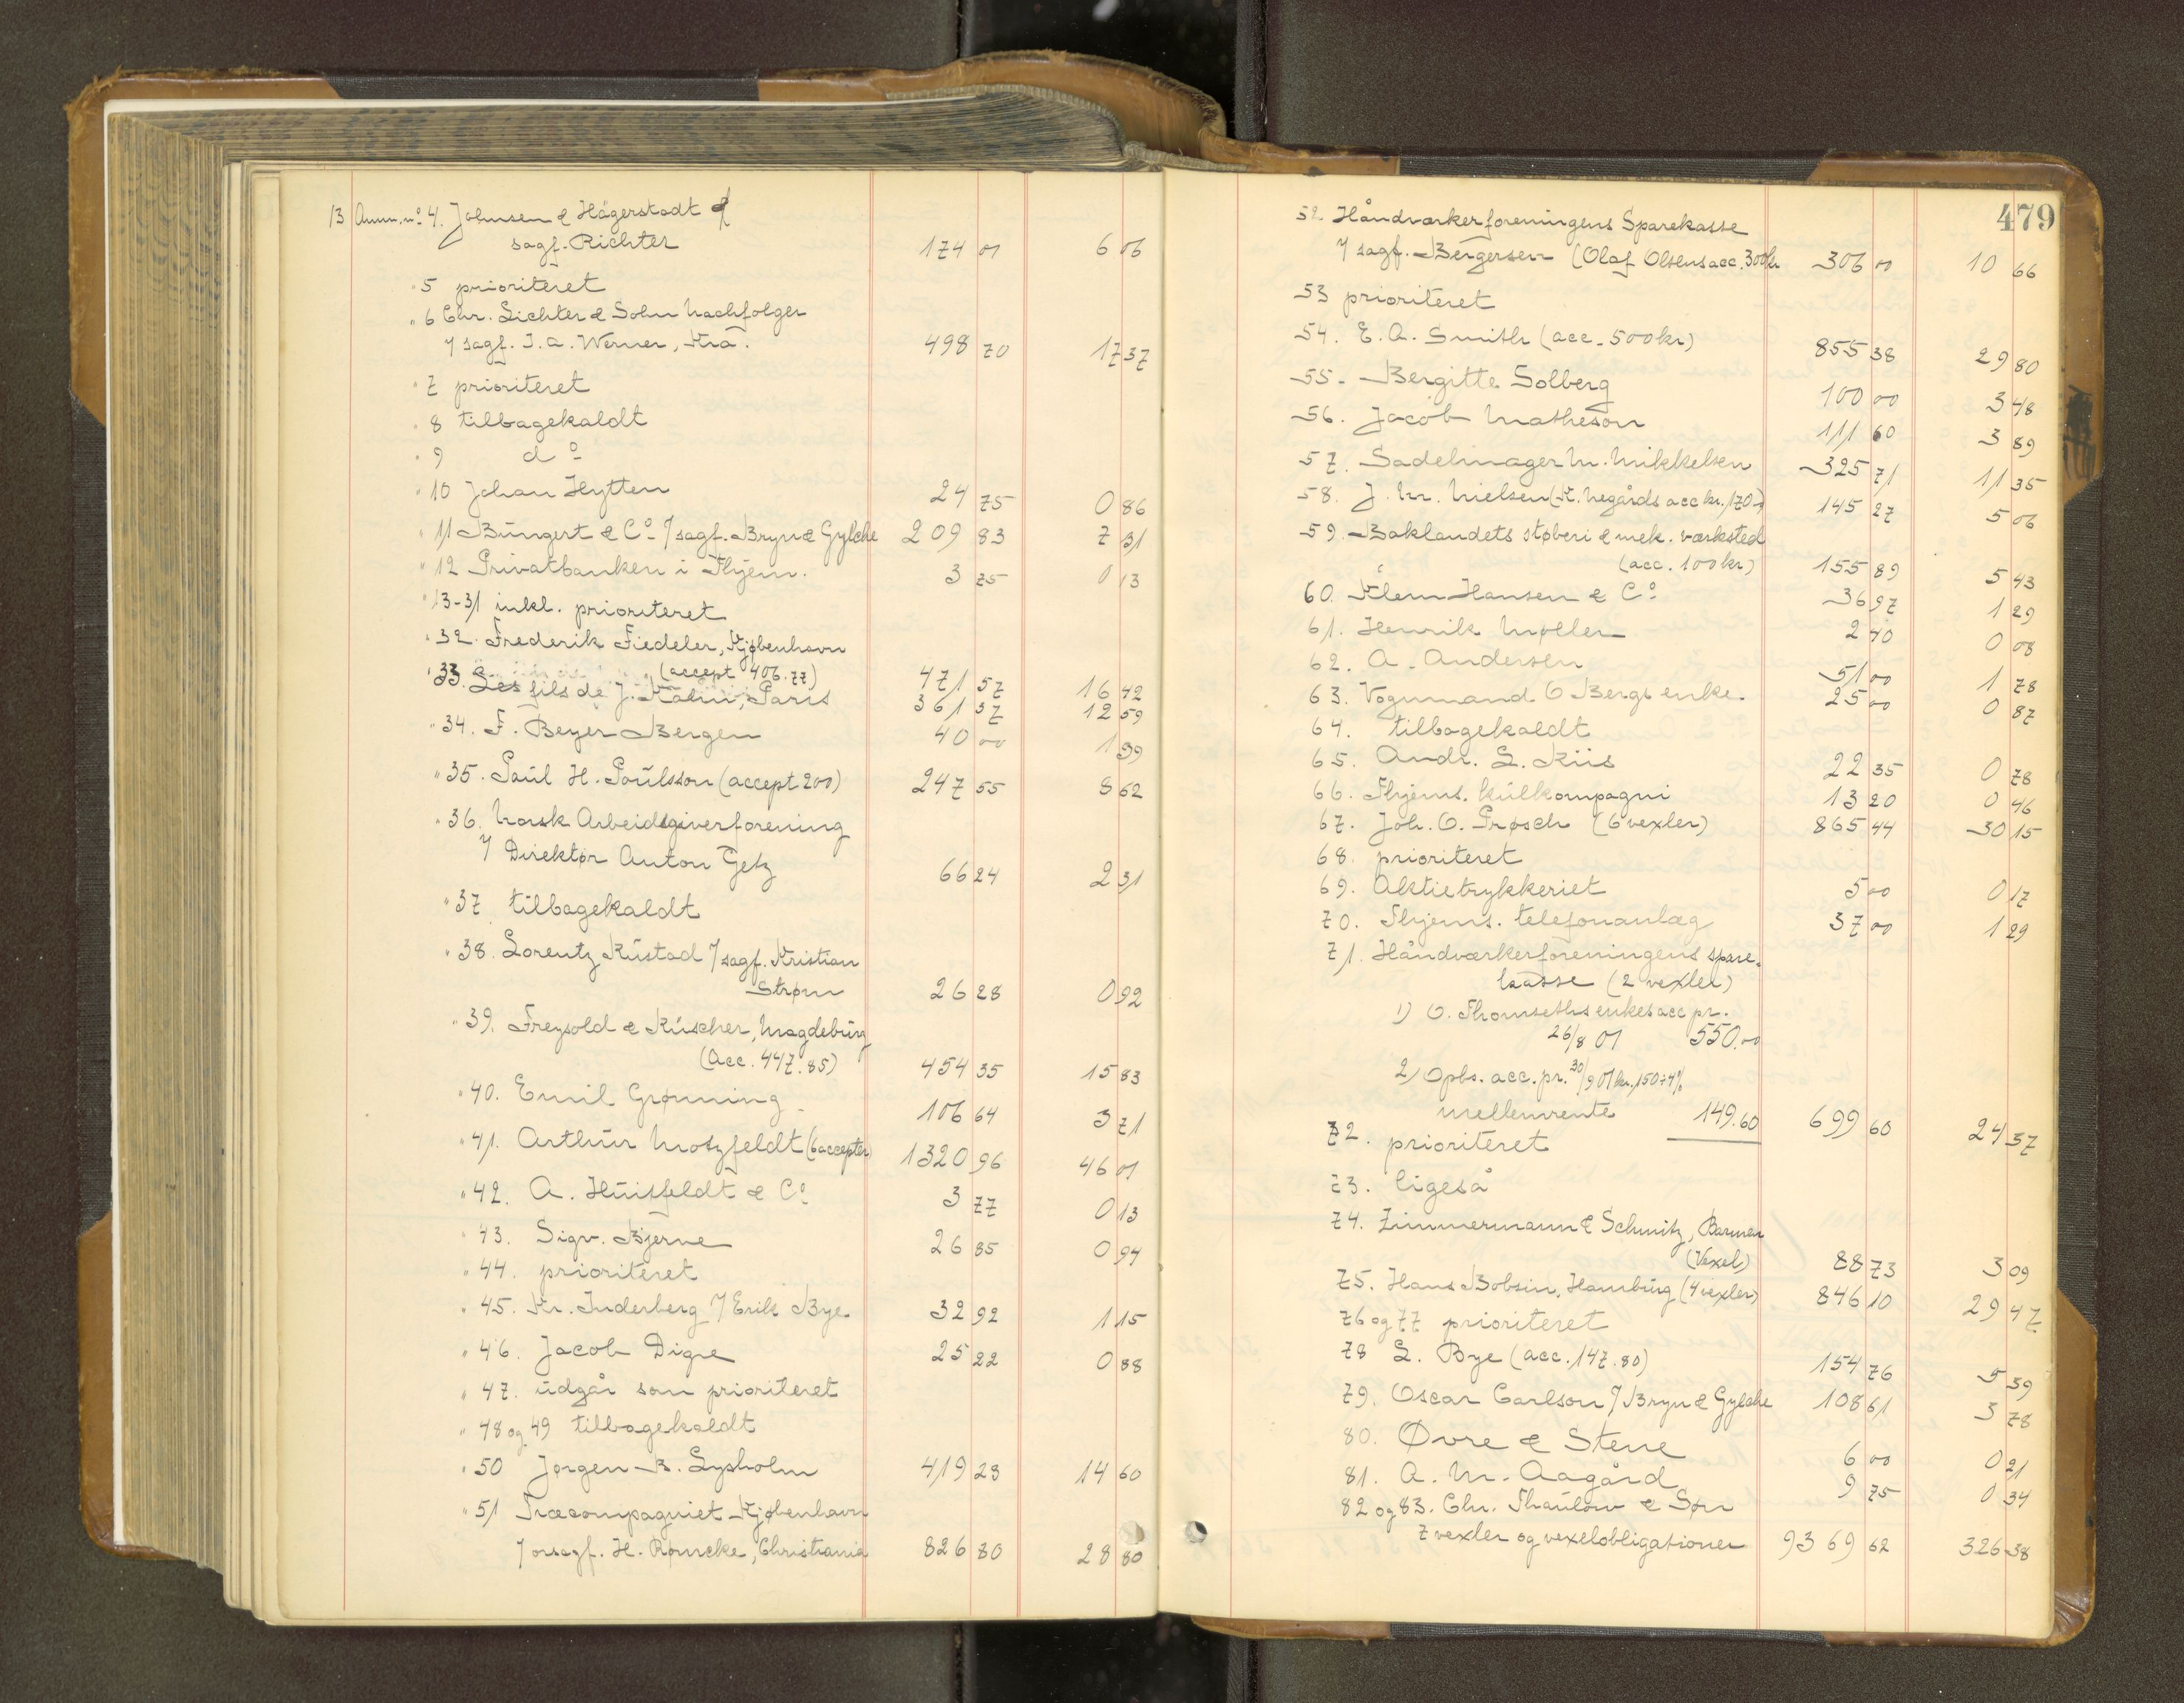 13 Anm. nº 4. Johnsen & Hägerstadt
sagf. Richter 174 01 6 06
" 5 prioriteret
" 6 Chr. Lichter & Sohn Nachfolger
v/ sagf. J. A. Werner, Kra. 498 70 17 37
" 7 prioriteret
" 8 tilbagekaldt
" 9 dº
" 10 Johan Hytten 24 75 0 86
" 11 Büngert & Cº v/ sagf. Bryn & Gylche 209 83 7 31
" 12 Privatbanken i Thjem. 3 75 0 13
" 13-31 inkl. prioriteret
" 32 Frederik Fiedeler, Kjøbenhavn
(accept 406.77) 471 57 16 42
" 33. Les fils de J. Kahn, Paris 361 37 12 59
" 34. F. Beyer Bergen 40 00 1 39
" 35. Paul H. Poulsson (accept 200) 247 55 8 62
" 36. Norsk Arbeidsgiverforening
v/ Direktør Anton Getz 66 24 2 31
" 37 tilbagekaldt
" 38. Lorentz Rustad v/ sagf. Kristian
Strøm 26 28 0 92
" 39. Freysold & Küscher, Magdeburg
(Acc. 447.85) 454 35 15 83
" 40. Emil Grønning 106 64 3 71
" 41. Arthur Motzfeldt (6 accepter) 1320 96 46 01
" 42. A. Huitfeldt & Cº 3 77 0 13
" 43. Sigv. Bjerve 26 85 0 94
" 44. prioriteret
" 45. Kr. Inderberg v/ Erik Bye 32 92 1 15
" 46. Jacob Digre 25 22 0 88
" 47. udgår som prioriteret
" 48 og 49 tilbagekaldt
" 50 Jørgen B. Lysholm 419 23 14 60
" 51 Træcompagniet Kjøbenhavn
v/ orsagf. H. Romcke, Christiania 826 80 28 80
479
52 Håndværkerforeningens Sparekasse
v/ sagf. Bergersen (Olaf Olsens acc. 300 kr 306 00 10 66
53 prioriteret
54. E. A. Smith (acc. 500 kr) 855 38 29 80
55. Bergitte Solberg 100 00 3 48
56. Jacob Matheson 111 60 3 89
57. Sadelmager M. Mikkelsen 325 71 11 35
58. J. M. Nielsen (K. Negårds acc kr. 170-) 145 27 5 06
59. Baklandets støberi & mek. værksted
(acc. 100 kr) 155 89 5 43
60. Klem Hansen & Cº 36 97 1 29
61. Henrik Møller 2 40 0 08
62. A. Andersen 51 00 1 78
63. Vognmand O Bergs enke. 25 00 0 87
64. tilbagekaldt
65. Andr. L. Riis 22 35 0 78
66. Thjems. kulkompagni 13 20 0 46
67. Joh. O. Prøsch (6 vexler) 865 44 30 15
68. prioriteret
69. Aktietrykkeriet 5 00 0 17
70. Thjems. telefonanlæg 37 00 1 29
71. Håndværkerforeningens spare-
kasse (2 vexler)
1) O. Thomseths enkes acc pr.
26/8 01 550.00
2) Opb. acc. pr. 30/9 01 kr. 150 ÷ 4%
mellemrente 149.60 699 60 24 37
72. prioriteret
73. ligeså
74. Zimmermann & Schmitz, Barmen
(Vexel) 88 73 3 09
75. Hans Bobsin, Hamburg (4 vexler) 846 10 29 47
76 og 77 prioriteret
78 L. Bye (acc. 147.80) 154 76 5 39
79. Oscar Carlson v/ Bryn & Gylche 108 61 3 78
80. Øvre & Stene 6 00 0 21
81. A. M. Aagård 9 75 0 34
82 og 83. Chr. Thaulow & Søn
7 vexler og vexelobligationer 9369 62 326 38